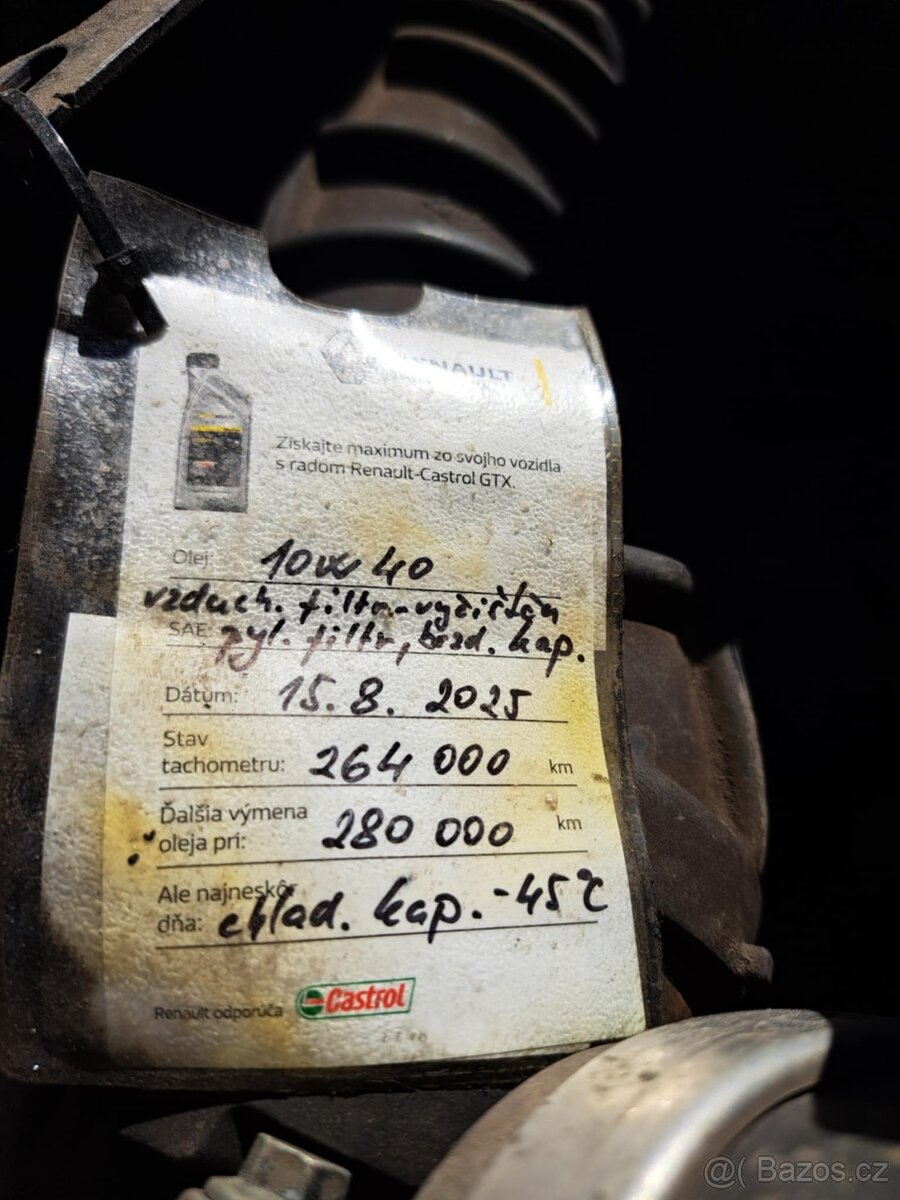 RENAULT
Získajte maximum zo svojho vozidla
s radom Renault-Castrol GTX.
Olej: 10W 40
vzduch. filtr.-vyčištěn
SAE: pyl. filtr, brzd. kap.
Dátum: 15. 8. 2025
Stav
tachometru: 264 000 km
Ďalšia výmena
oleja pri: 280 000 km
Ale najneskôr
dňa: chlad. kap. -45°C
Renault odporúča Castrol
@( Bazos.cz